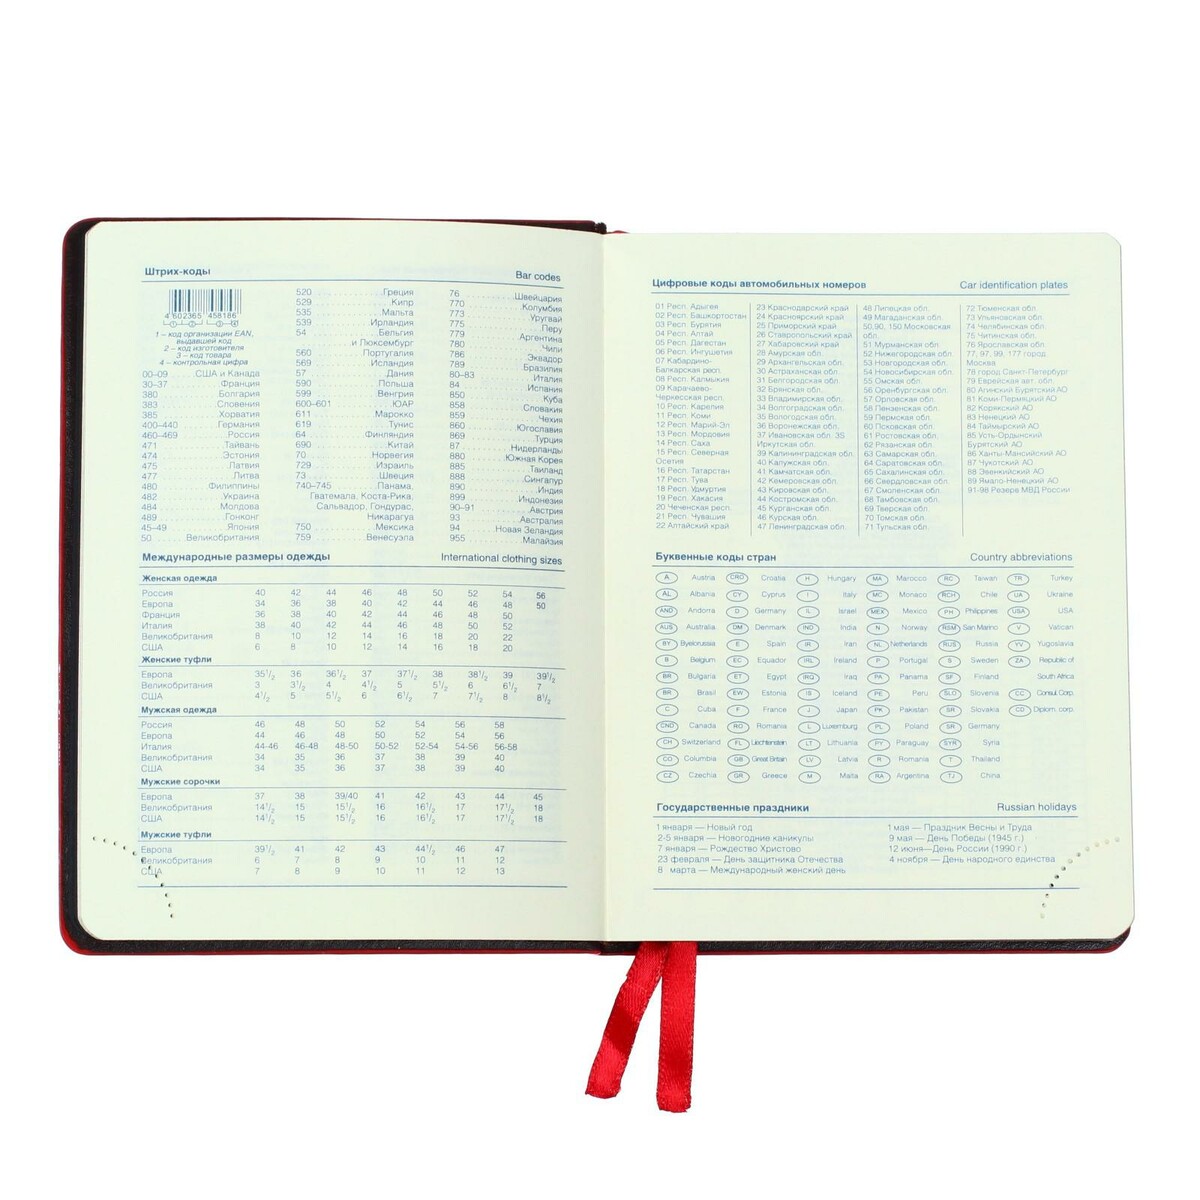 Штрих-коды Bar codes
4 602365 458186
1 – код организации EAN,
выдавшей код
2 – код изготовителя
3 – код товара
4 – контрольная цифра
00–09 США и Канада
30–37 Франция
380 Болгария
383 Словения
385 Хорватия
400–440 Германия
460–469 Россия
471 Тайвань
474 Эстония
475 Латвия
477 Литва
480 Филиппины
482 Украина
484 Молдова
489 Гонконг
45–49 Япония
50 Великобритания
520 Греция
529 Кипр
535 Мальта
539 Ирландия
54 Бельгия
и Люксембург
560 Португалия
569 Исландия
57 Дания
590 Польша
599 Венгрия
600–601 ЮАР
611 Марокко
619 Тунис
64 Финляндия
690 Китай
70 Норвегия
729 Израиль
73 Швеция
740–745 Панама,
Гватемала, Коста-Рика,
Сальвадор, Гондурас,
Никарагуа
750 Мексика
759 Венесуэла
76 Швейцария
770 Колумбия
773 Уругвай
775 Перу
779 Аргентина
780 Чили
786 Эквадор
789 Бразилия
80–83 Италия
84 Испания
850 Куба
858 Словакия
859 Чехия
860 Югославия
869 Турция
87 Нидерланды
880 Южная Корея
885 Таиланд
888 Сингапур
890 Индия
899 Индонезия
90–91 Австрия
93 Австралия
94 Новая Зеландия
955 Малайзия
Международные размеры одежды International clothing sizes
Женская одежда
Россия 40 42 44 46 48 50 52 54 56
Европа 34 36 38 40 42 44 46 48 50
Франция 36 38 40 42 44 46 48 50
Италия 38 40 42 44 46 48 50 52
Великобритания 8 10 12 14 16 18 20 22
США 6 8 10 12 14 16 18 20
Женские туфли
Европа 35 1/2 36 36 1/2 37 37 1/2 38 38 1/2 39 39 1/2
Великобритания 3 3 1/2 4 4 1/2 5 5 1/2 6 6 1/2 7
США 4 1/2 5 5 1/2 6 6 1/2 7 7 1/2 8 8 1/2
Мужская одежда
Россия 46 48 50 52 54 56 58
Европа 44 46 48 50 52 54 56
Италия 44-46 46-48 48-50 50-52 52-54 54-56 56-58
Великобритания 34 35 36 37 38 39 40
США 34 35 36 37 38 39 40
Мужские сорочки
Европа 37 38 39/40 41 42 43 44 45
Великобритания 14 1/2 15 15 1/2 16 16 1/2 17 17 1/2 18
США 14 1/2 15 15 1/2 16 16 1/2 17 17 1/2 18
Мужские туфли
Европа 39 1/2 41 42 43 44 1/2 46 47
Великобритания 6 7 8 9 10 11 12
США 7 8 9 10 11 12 13
Цифровые коды автомобильных номеров Car identification plates
01 Респ. Адыгея
02 Респ. Башкортостан
03 Респ. Бурятия
04 Респ. Алтай
05 Респ. Дагестан
06 Респ. Ингушетия
07 Кабардино-
Балкарская респ.
08 Респ. Калмыкия
09 Карачаево-
Черкесская респ.
10 Респ. Карелия
11 Респ. Коми
12 Респ. Марий-Эл
13 Респ. Мордовия
14 Респ. Саха
15 Респ. Северная
Осетия
16 Респ. Татарстан
17 Респ. Тува
18 Респ. Удмуртия
19 Респ. Хакасия
20 Чеченская респ.
21 Респ. Чувашия
22 Алтайский край
23 Краснодарский край
24 Красноярский край
25 Приморский край
26 Ставропольский край
27 Хабаровский край
28 Амурская обл.
29 Архангельская обл.
30 Астраханская обл.
31 Белгородская обл.
32 Брянская обл.
33 Владимирская обл.
34 Волгоградская обл.
35 Вологодская обл.
36 Воронежская обл.
37 Ивановская обл. 3S
Иркутская обл.
39 Калининградская обл.
40 Калужская обл.
41 Камчатская обл.
42 Кемеровская обл.
43 Кировская обл.
44 Костромская обл.
45 Курганская обл.
46 Курская обл.
47 Ленинградская обл.
48 Липецкая обл.
49 Магаданская обл.
50,90, 150 Московская
обл.
51 Мурманская обл.
52 Нижегородская обл.
53 Новгородская обл.
54 Новосибирская обл.
55 Омская обл.
56 Оренбургская обл.
57 Орловская обл.
58 Пензенская обл.
59 Пермская обл.
60 Псковская обл.
61 Ростовская обл.
62 Рязанская обл.
63 Самарская обл.
64 Саратовская обл.
65 Сахалинская обл.
66 Свердловская обл.
67 Смоленская обл.
68 Тамбовская обл.
69 Тверская обл.
70 Томская обл.
71 Тульская обл.
72 Тюменская обл.
73 Ульяновская обл.
74 Челябинская обл.
75 Читинская обл.
76 Ярославская обл.
77, 97, 99, 177 город
Москва
78 город Санкт-Петербург
79 Еврейская авт. обл.
80 Агинский Бурятский АО
81 Коми-Пермяцкий АО
82 Корякский АО
83 Ненецкий АО
84 Таймырский АО
85 Усть-Ордынский
Бурятский АО
86 Ханты-Мансийский АО
87 Чукотский АО
88 Эвенкийский АО
89 Ямало-Ненецкий АО
91-98 Резерв МВД России
Буквенные коды стран Country abbreviations
A Austria CRO Croatia H Hungary MA Marocco RC Taiwan TR Turkey
AL Albania CY Cyprus I Italy MC Monaco RCH Chile UA Ukraine
AND Andorra D Germany IL Israel MEX Mexico PH Philippines USA USA
AUS Australia DM Denmark IND India N Norway RSM San Marino V Vatican
BY Byelorussia E Spain IR Iran NL Netherlands RUS Russia YV Yugoslavia
B Belgium EC Equador IRL Ireland P Portugal S Sweden ZA Republic of
BR Bulgaria ET Egypt IRQ Iraq PA Panama SF Finland South Africa
BR Brasil EW Estonia IS Iceland PE Peru SLO Slovenia CC Consul. Corp.
C Cuba F France J Japan PK Pakistan SR Slovakia CD Diplom. corp.
CND Canada RO Romania L Luxemburg PL Poland SR Germany
CH Switzerland FL Liechtenstein LT Lithuania PY Paraguay SYR Syria
CO Columbia GB Great Britain LV Latvia R Romania T Thailand
CZ Czechia GR Greece M Malta RA Argentina TJ China
Государственные праздники Russian holidays
1 января — Новый год
2-5 января — Новогодние каникулы
7 января — Рождество Христово
23 февраля — День защитника Отечества
8 марта — Международный женский день
1 мая — Праздник Весны и Труда
9 мая — День Победы (1945 г.)
12 июня—День России (1990 г.)
4 ноября — День народного единства